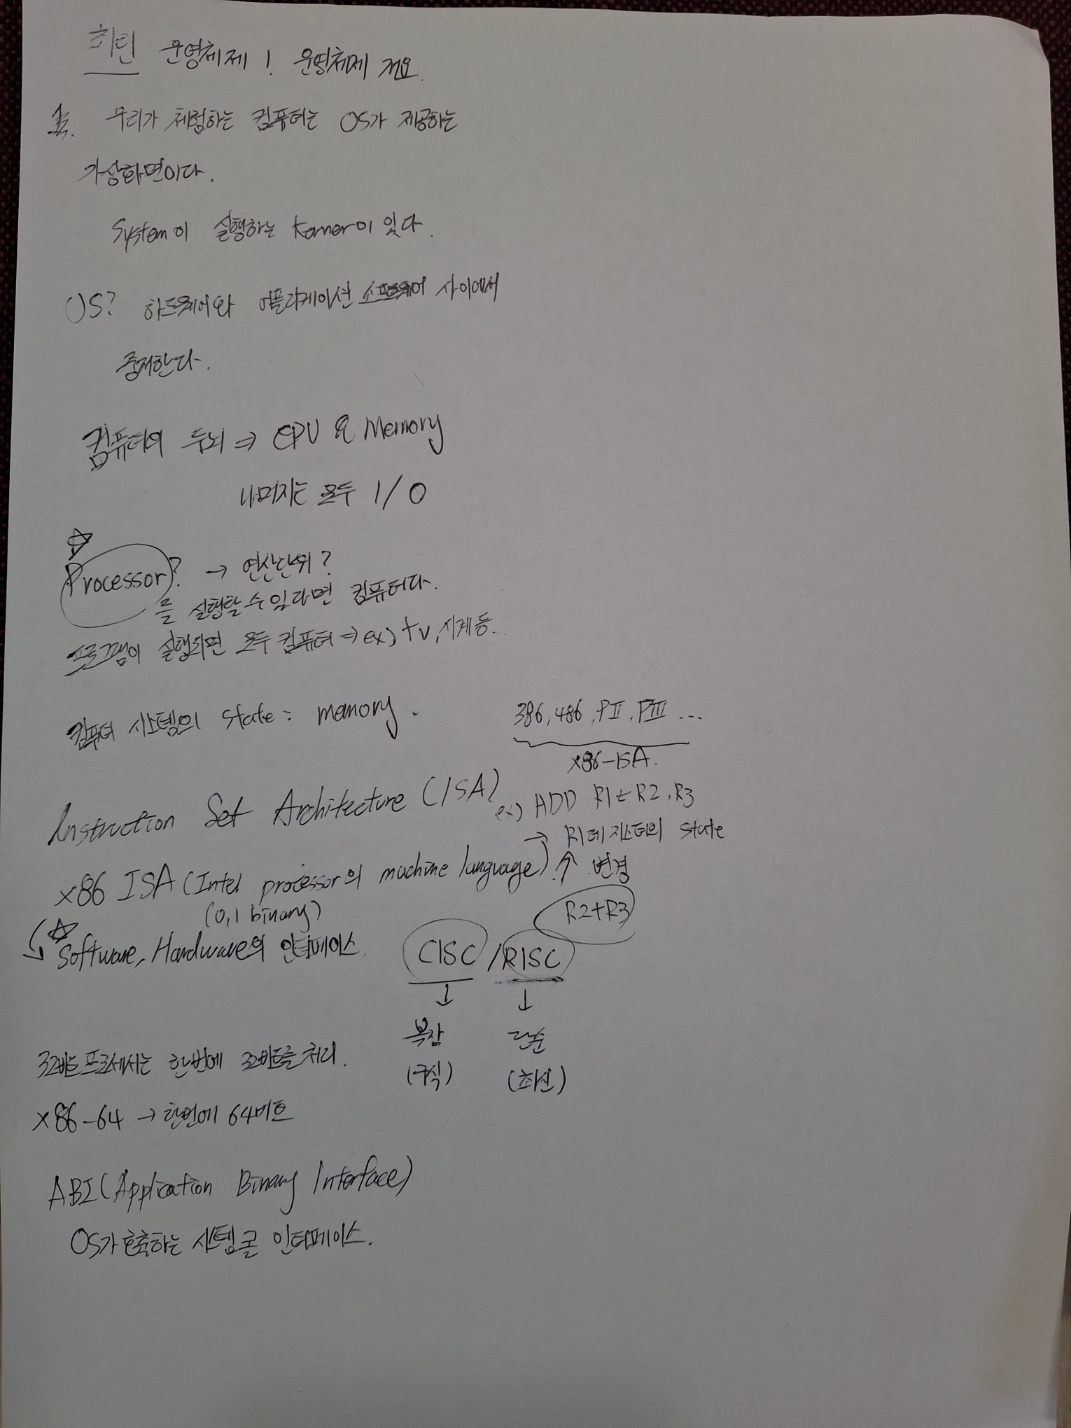 운영체제! 운영체제 개요.
우리가 체험하는 컴퓨터는 OS가 제공하는
가상화면이다.
System이 실행하는 Kerner이 있다.
OS? 하드웨어와 어플리케이션 소프트웨어 사이에서
중재한다.
컴퓨터의 두뇌 ⇒ CPU & Memory
나머지는 모두 I/O
☆
Processor? → 연산단위?
를 실행할 수 있다면 컴퓨터다.
프로그램이 실행되면 모두 컴퓨터 ⇒ ex) tv, 시계 등..
컴퓨터 시스템의 state : memory.
386, 486, PⅡ, PⅢ ...
x86-ISA.
Instruction Set Architecture (ISA)
ex) ADD R1 ← R2, R3
→ R1레지스터의 state
↑ 변경
R2+R3
x86 ISA (Intel processor의 machine language)
(0,1 binary)
☆
Software, Hardware의 인터페이스.
CISC / RISC
↓ ↓
복잡 단순
(구식) (최신)
32비트 프로세서는 한번에 32비트를 처리.
x86-64 → 한번에 64비트
ABI (Application Binary Interface)
OS가 호출하는 시스템 콜 인터페이스.